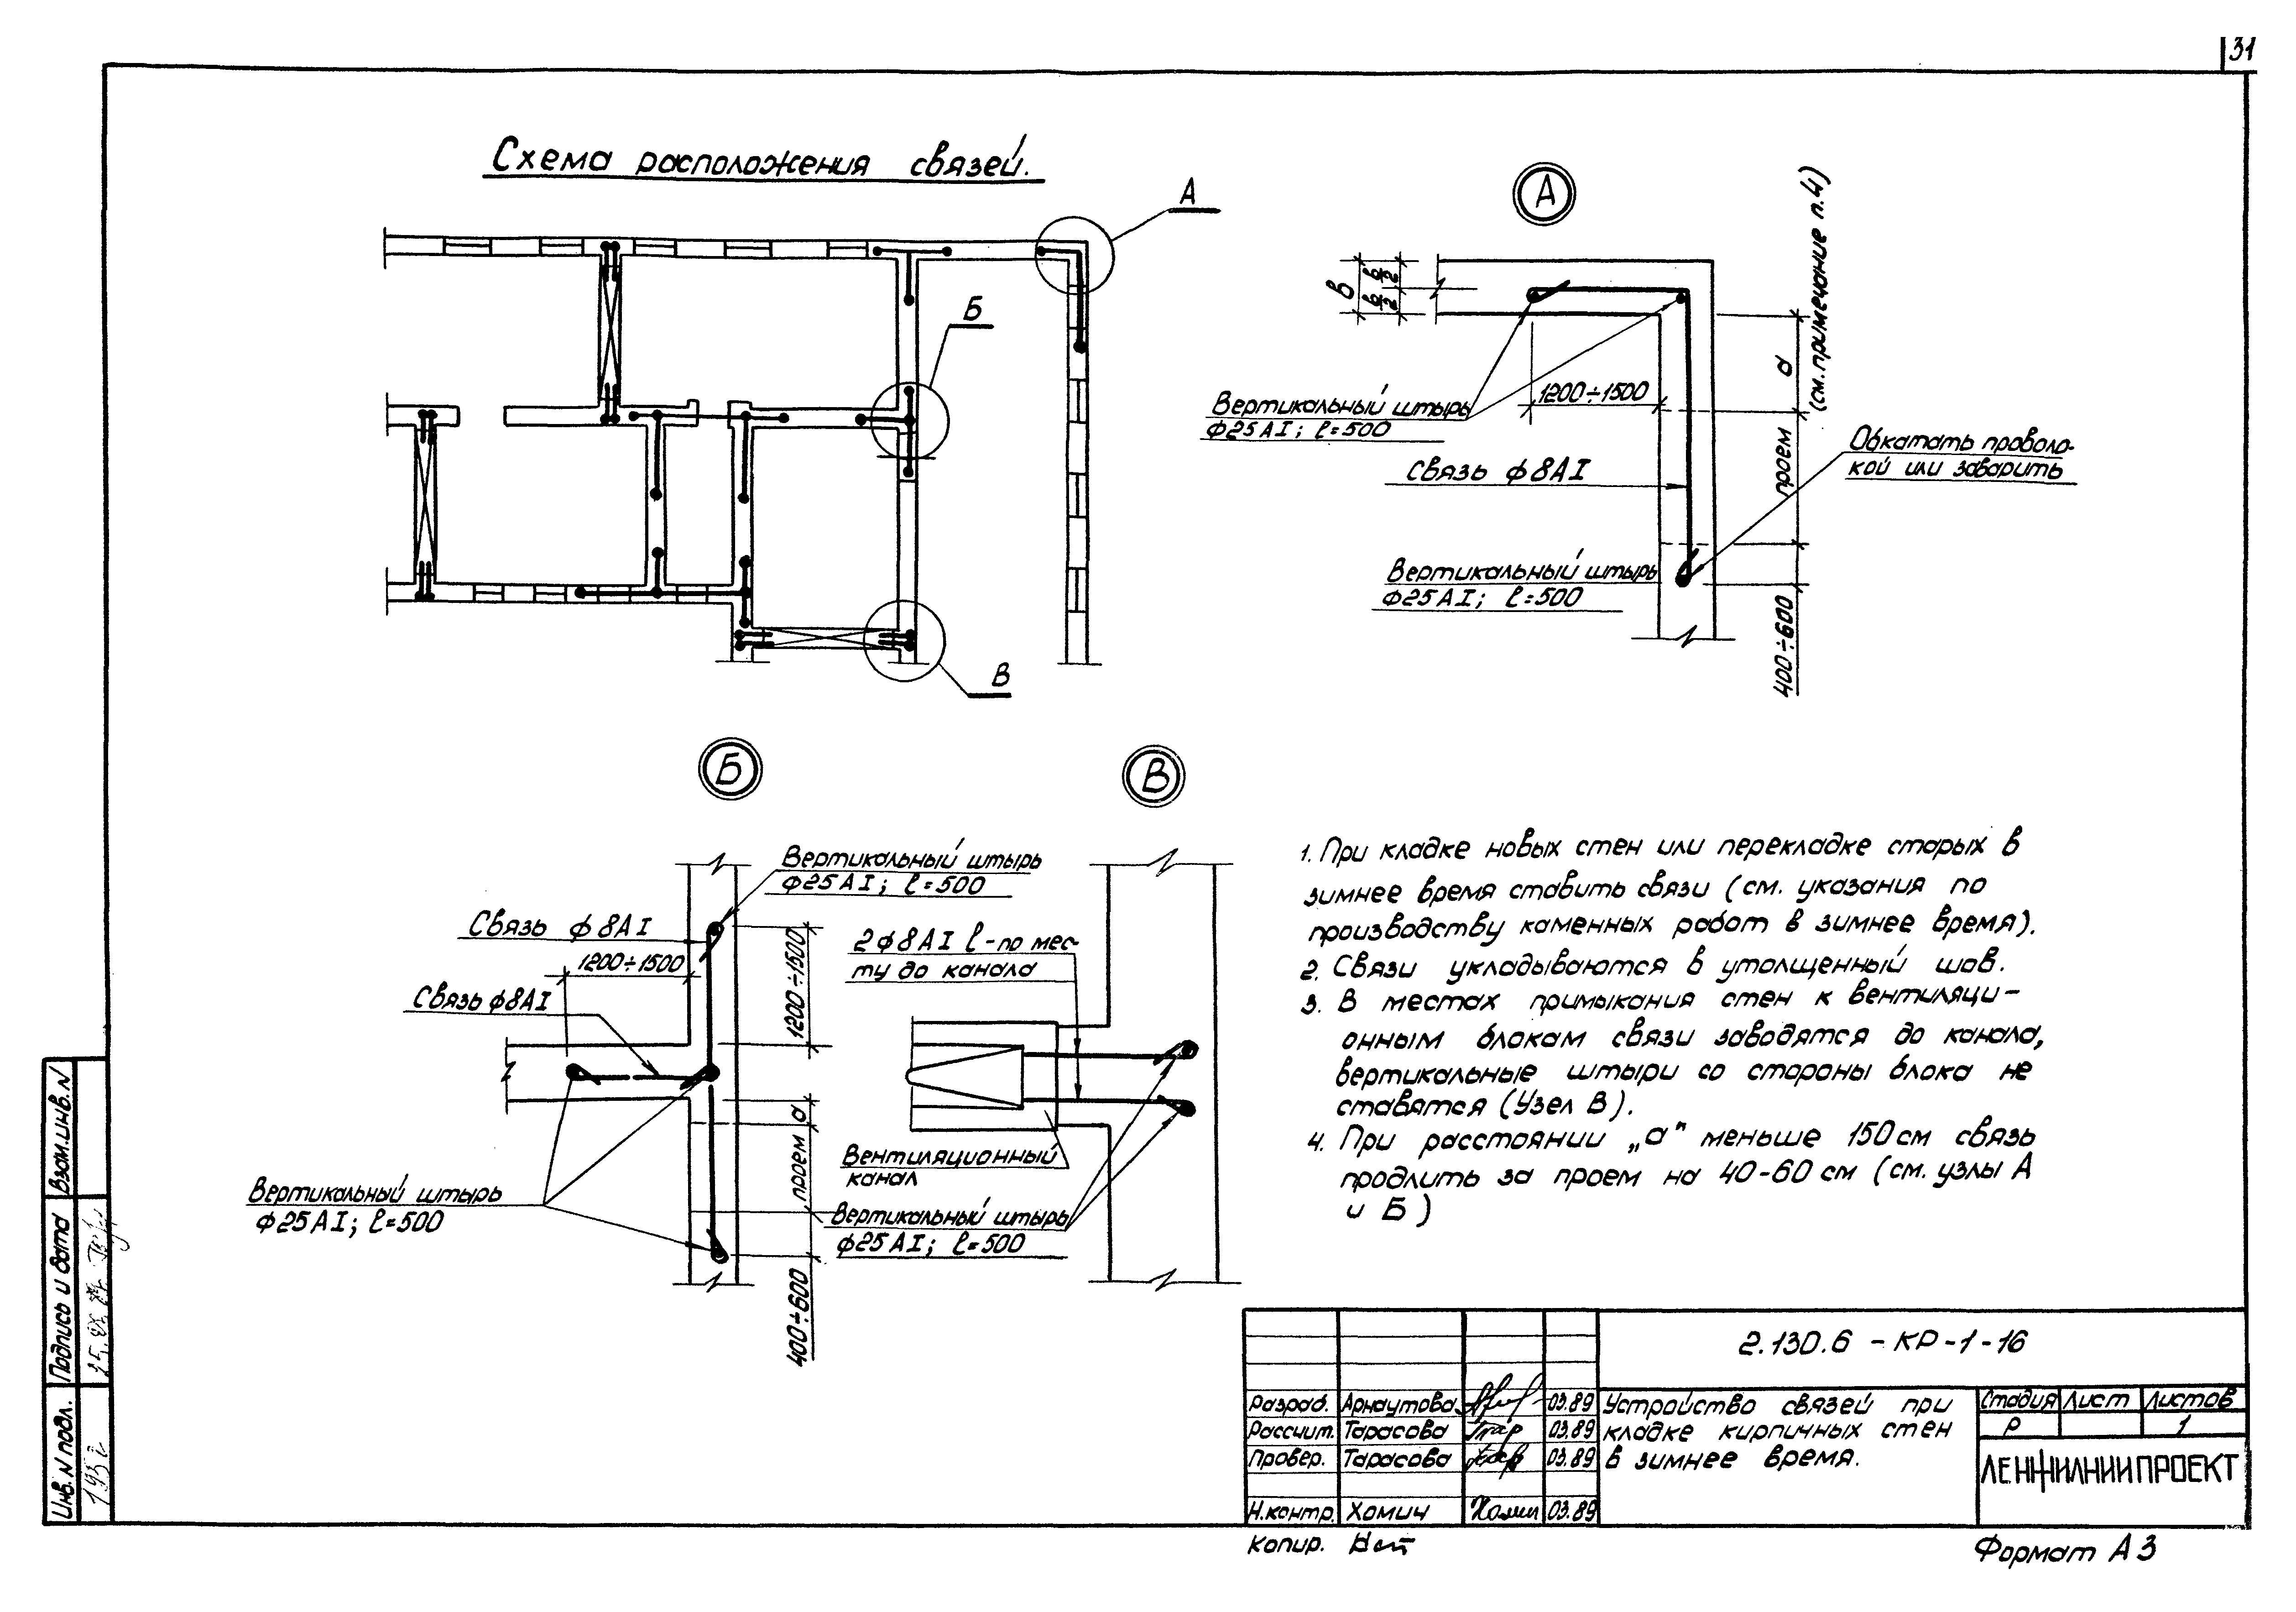 31
Схема расположения связей.
А
Б
В
А
(см. примечание п.4)
в
в/2
в/2
а
1200÷1500
Вертикальный штырь
ф25АI; ℓ=500
проем
Обкатать проволо-
кой или заварить
Связь ф8АI
Вертикальный штырь
ф25АI; ℓ=500
400÷600
Б
Вертикальный штырь
ф25АI; ℓ=500
Связь ф8АI
1200÷1500
1200÷1500
Связь ф8АI
а
проем
Вертикальный штырь
ф25АI; ℓ=500
400÷600
В
2ф8АI ℓ-по мес-
ту до канала
Вентиляционный
канал
Вертикальный штырь
ф25АI; ℓ=500
1. При кладке новых стен или перекладке старых в
зимнее время ставить связи (см. указания по
производству каменных работ в зимнее время).
2. Связи укладываются в утолщенный шов.
3. В местах примыкания стен к вентиляци-
онным блокам связи заводятся до канала,
вертикальные штыри со стороны блока не
ставятся (Узел В).
4. При расстоянии „а" меньше 150см связь
продлить за проем на 40-60 см (см. узлы А
и Б)
Взам.инв.N
Подпись и дата
Инв.N подл.
2.130.6 - КР-1-16
Разраб. Арнаутова 03.89
Рассчит. Тарасова 03.89
Провер. Тарасова 03.89
Н.контр. Хомич 03.89
Устройство связей при
кладке кирпичных стен
в зимнее время.
Стадия Лист Листов
Р 1
ЛЕНЖИЛНИИПРОЕКТ
Копир.
Формат А3